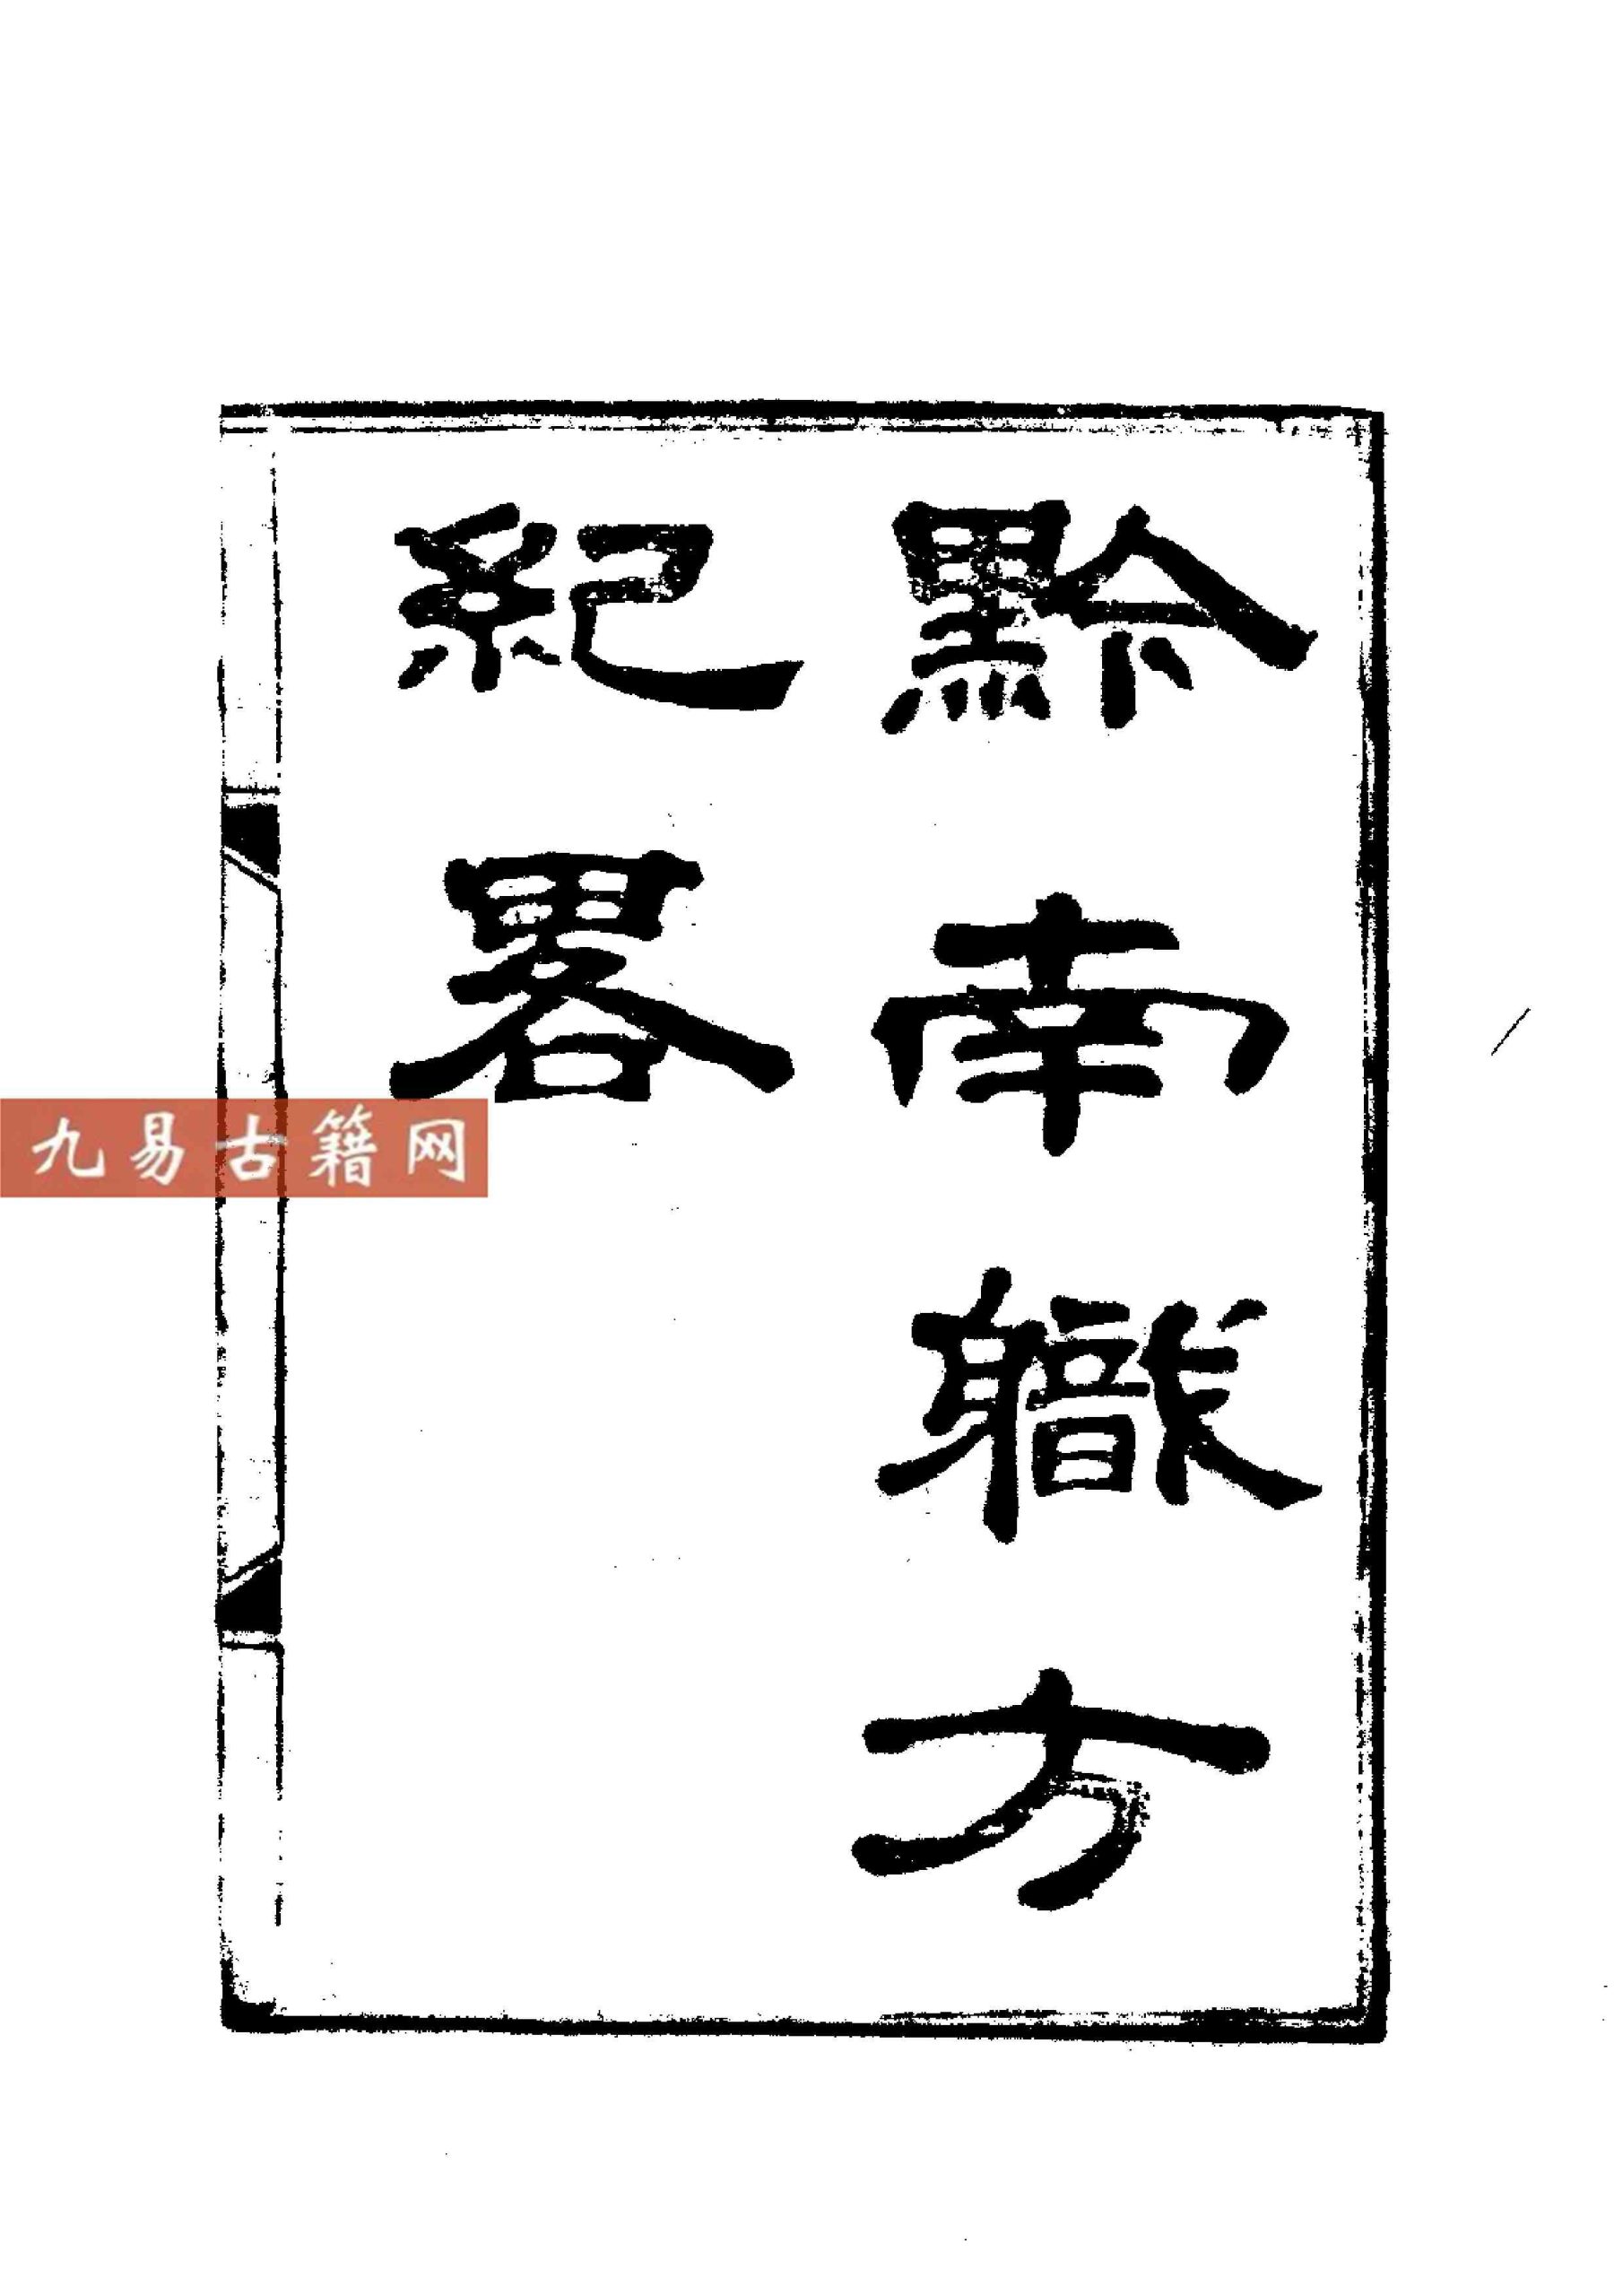 黔南職方
紀畧
九易古籍网